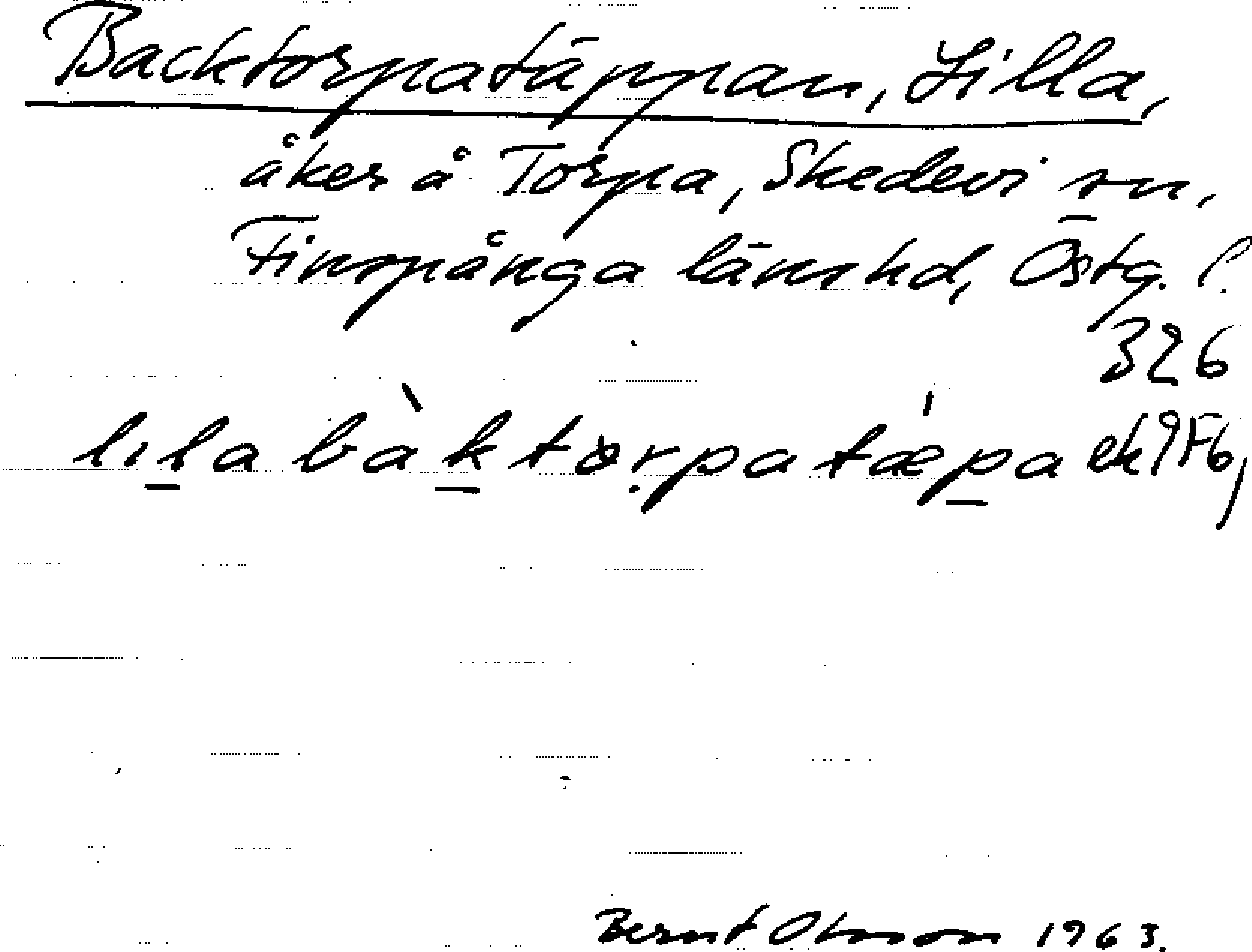 Backtorpatäppan, Lilla,
åker å Torpa, Skedevi sn,
Finspånga länshd, Östg. l.
326
lıla bàktɷrpatǽpa ek 9F6,
Bernt Olsson 1963.